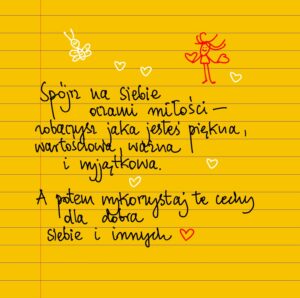 Spójrz na siebie
oczami miłości –
zobaczysz jaka jesteś piękna,
wartościowa, ważna
i wyjątkowa.
A potem wykorzystaj te cechy
dla dobra
siebie i innych